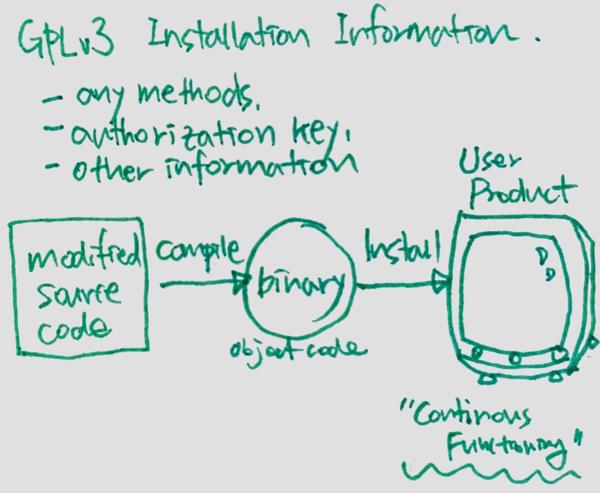 GPLv3 Installation Information.
- any methods,
- authorization key,
- other information
User
Product
modified
source
code
Compile
binary
object code
Install
"Continous
Functioning"